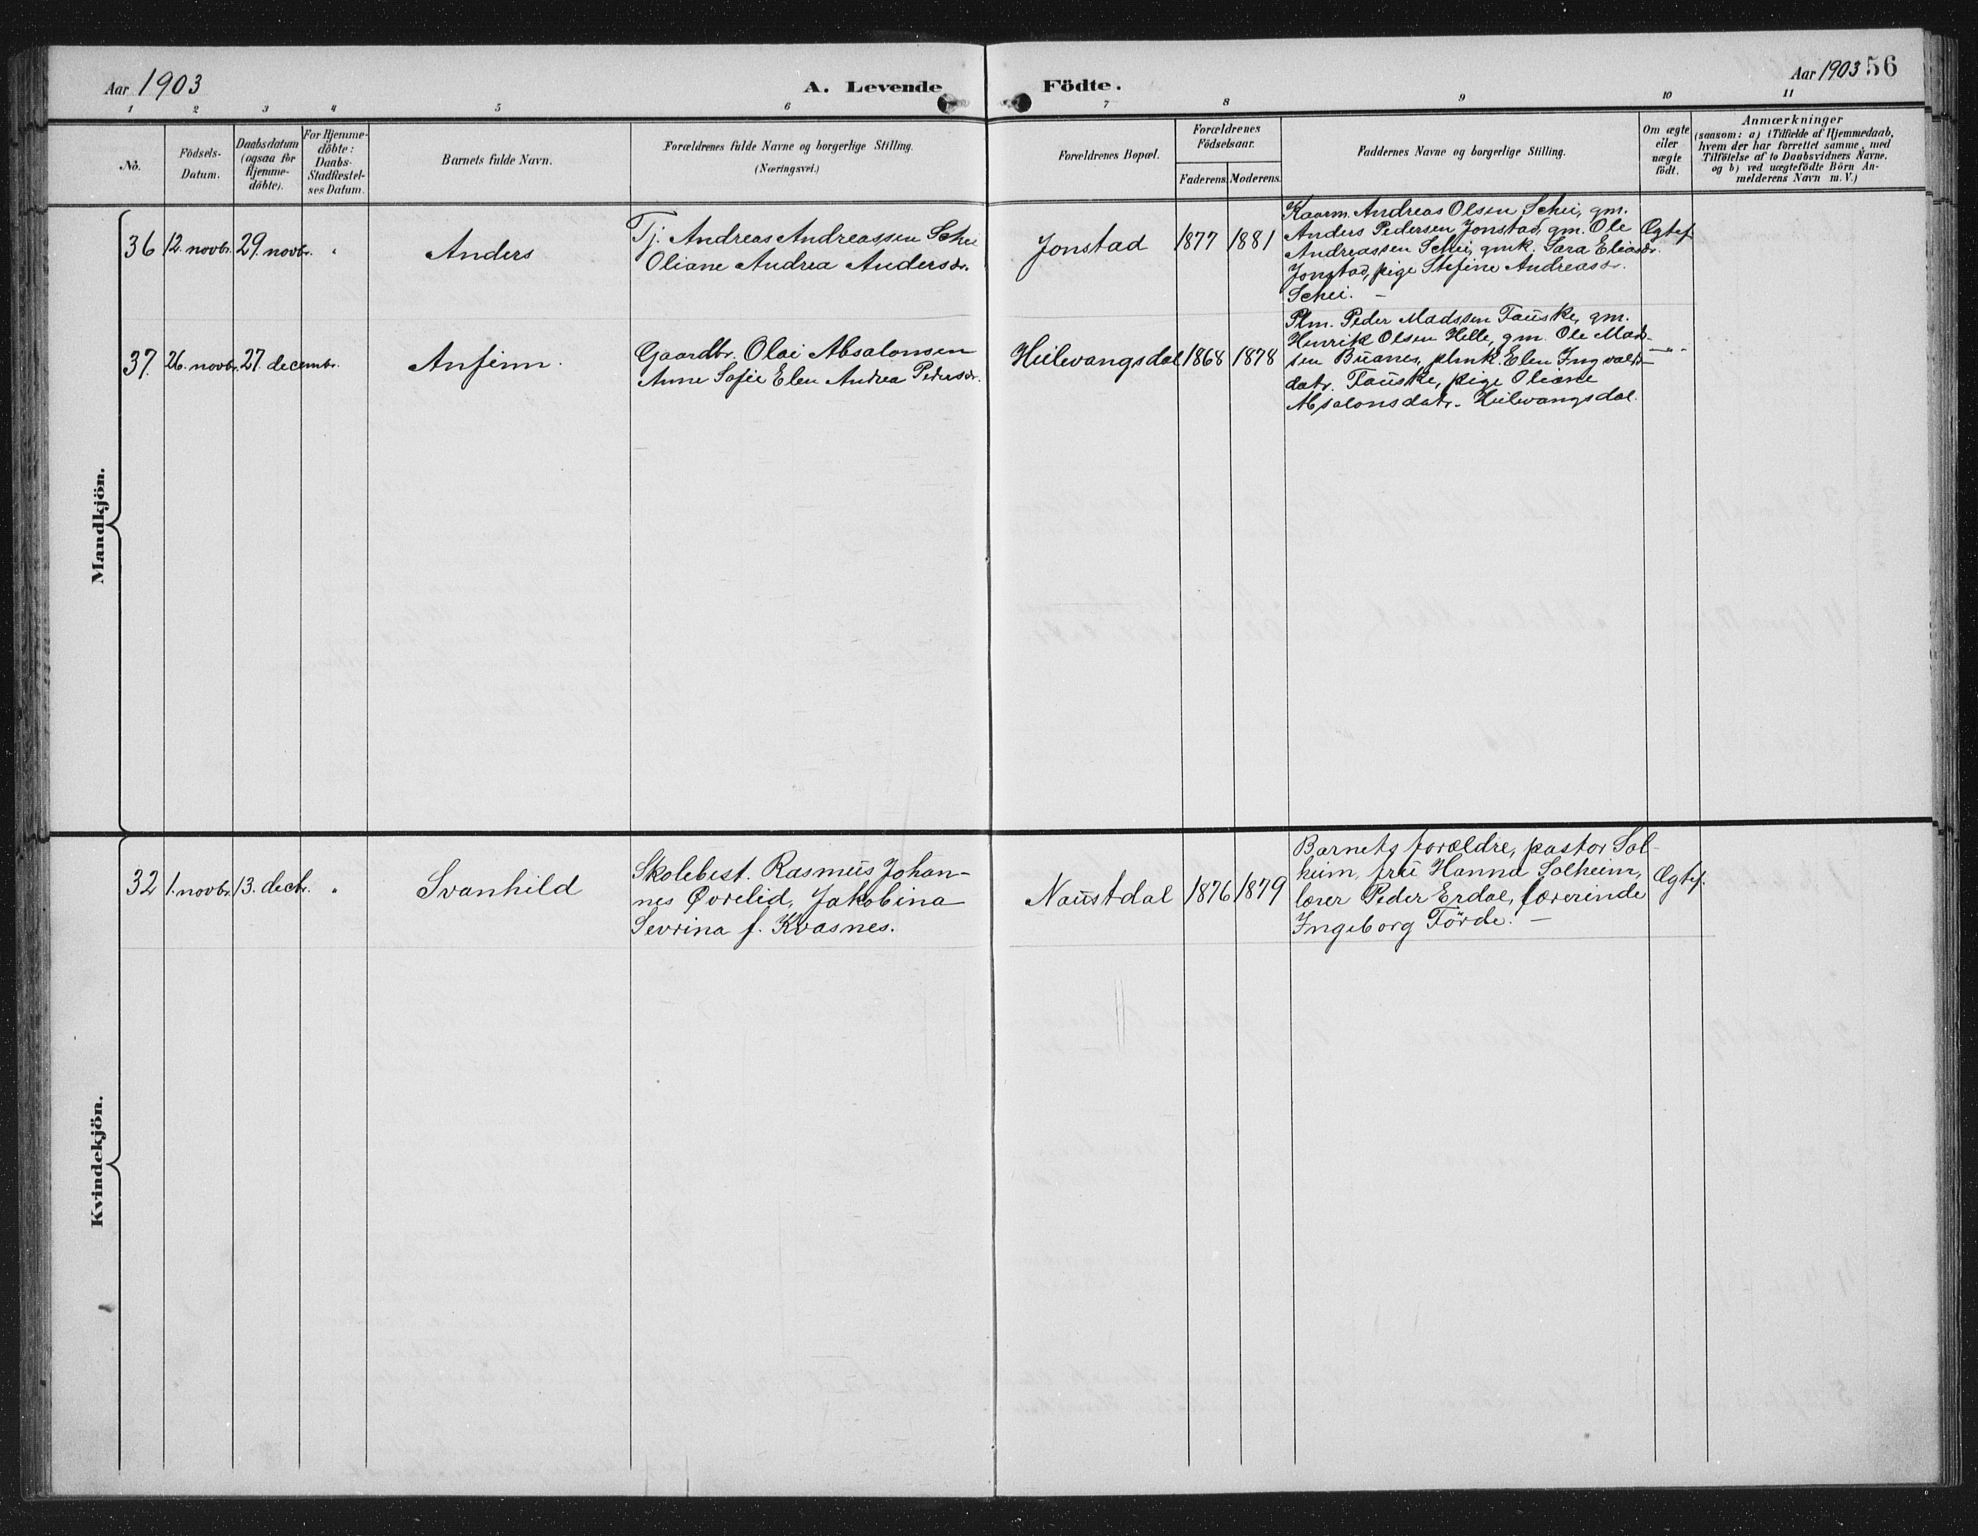 Aar 1903
A. Levende Födte.
Aar 1903 56
1 2 3 4 5 6 7 8 9 10 11
No.
Födsels-
Datum.
Daabsdatum
(ogsaa for
Hjemme-
döbte).
For Hjemme-
döbte:
Daabs-
Stadfæstel-
ses Datum.
Barnets fulde Navn.
Forældrenes fulde Navne og borgerlige Stilling.
(Næringsvei.)
Forældrenes Bopæl.
Forældrenes
Födselsaar.
Faderens. Moderens.
Faddernes Navne og borgerlige Stilling.
Om ægte
eller
uægte
födt.
Anmærkninger
(saasom: a) i Tilfælde af Hjemmedaab,
hvem der har forrettet samme, med
Tilföielse af to Daabsvidners Navne,
og b) ved uægtefödte Börn An-
melderens Navn m. V.)
Mandkjön.
36 12. novbr. 29. novbr. " Anders
Tj. Andreas Andreassen Schei
Oliane Andrea Andersdr.
Jonstad 1877 1881
Kaarm. Andreas Olsen Schei, gm.
Anders Pedersen Jonstad, gm. Ole
Andreassen Schei, gmk. Sara Eliasdr.
Jonstad, pige Stefine Andreasdr.
Schei. —
Ægtef.
37. 26. novbr. 27. decembr. Anfinn.
Gaardbr. Olai Absalonsen
Anne Sofie Elen Andrea Pedersdr.
Heilevangsdal 1868 1878
Plm. Peder Madssen Fauske, gm.
Henrik Olsen Helle, gm. Ole Mad-
sen Buanes, plmk. Elen Ingvalds-
datr. Fauske, pige Oliane
Absalonsdatr. Heilevangsdal.
—"—
Kvindekjön.
32 1. novbr. 13. decbr. " Svanhild
Skolebest. Rasmus Johan-
nes Øvrelid, Jakobina
Sevrina f. Kvasnes.
Naustdal 1876 1879
Barnets forældre, pastor Sol-
heim, fru Hanna Solheim,
lærer Peder Erdal, lærerinde
Ingeborg Förde. —
Ægtef.